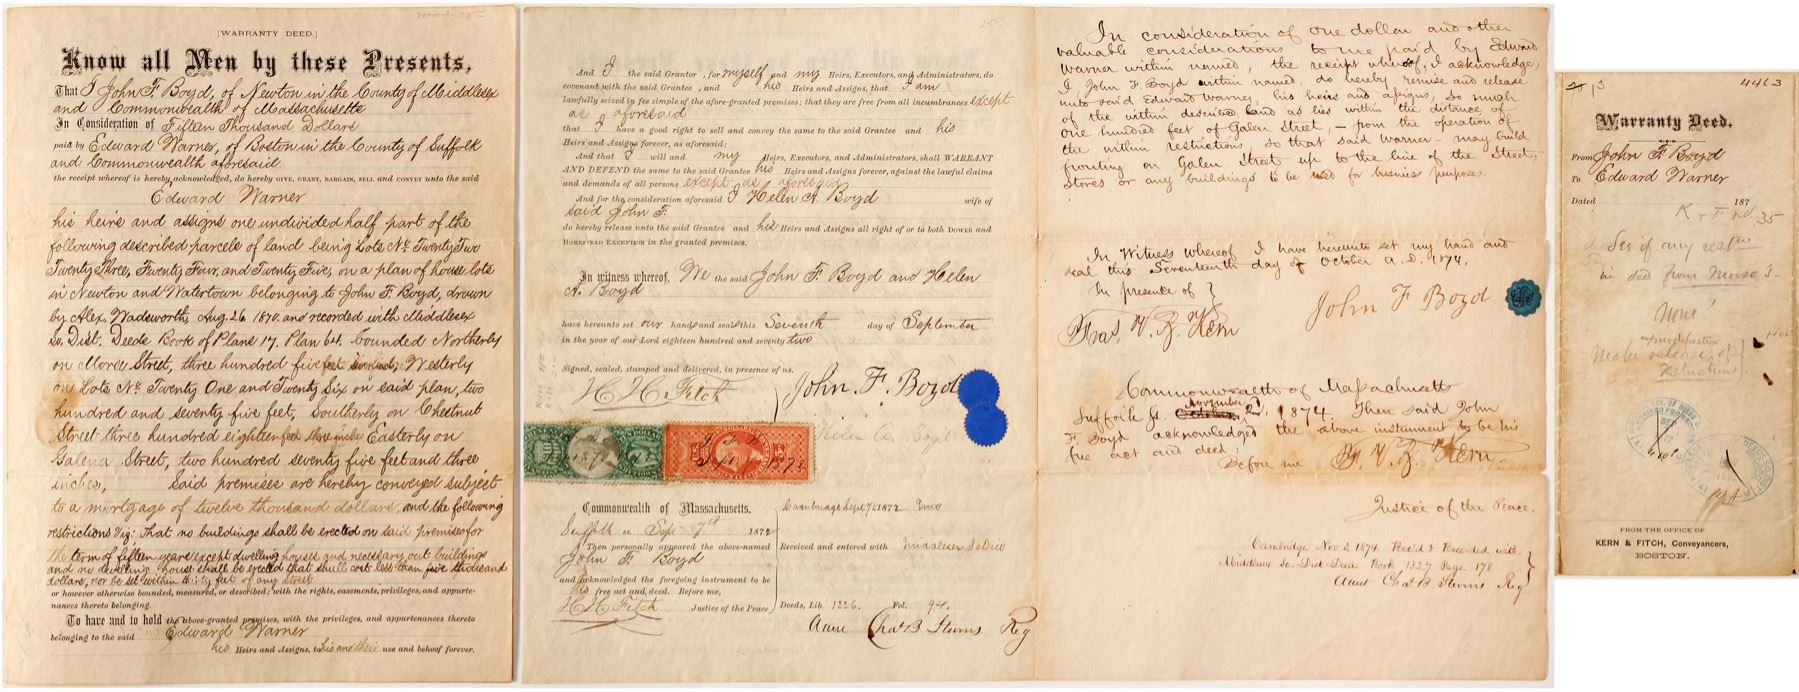 [WARRANTY DEED.]
Know all Men by these Presents,
That I John F. Boyd, of Newton in the County of Middlesex
and Commonwealth of Massachusetts
In Consideration of Fifteen Thousand Dollars
paid by Edward Warner, of Boston in the County of Suffolk
and Commonwealth aforesaid
the receipt whereof is hereby acknowledged, do hereby GIVE, GRANT, BARGAIN, SELL and CONVEY unto the said
Edward Warner
his heirs and assigns one undivided half part of the
following described parcels of land being Lots No. Twenty Two
Twenty Three, Twenty Four, and Twenty Five, on a plan of house lots
in Newton and Watertown belonging to John F. Boyd, drawn
by Alex. Wadsworth, Aug. 26, 1870. and recorded with Middlesex
So. Dist. Deeds Book of Plans 17. Plan 64. bounded Northerly
on Morse Street, three hundred five feet Westerly
on Lots No. Twenty One and Twenty Six on said plan, two
hundred and seventy five feet, Southerly on Chestnut
Street three hundred eighteen feet three inches Easterly on
Galena Street, two hundred seventy five feet and three
inches, Said premises are hereby conveyed subject
to a mortgage of twelve thousand dollars. and the following
restrictions viz: That no buildings shall be erected on said premises for
the term of fifteen years except dwelling houses and necessary out buildings
and no dwelling house shall be erected that shall cost less than five thousand
dollars, nor be set within thirty feet of any street
or however otherwise bounded, measured, or described; with the rights, easements, privileges, and appurte-
nances thereto belonging.
To have and to hold the above-granted premises, with the privileges, and appurtenances thereto
belonging to the said Edward Warner
his Heirs and Assigns, to his and their use and behoof forever.
And I the said Grantor, for myself and my Heirs, Executors, and Administrators, do
covenant with the said Grantee, and his Heirs and Assigns, that I am
lawfully seized in fee simple of the afore-granted premises; that they are free from all incumbrances except
as aforesaid
that I have a good right to sell and convey the same to the said Grantee and his
Heirs and Assigns forever, as aforesaid;
And that I will and my Heirs, Executors, and Administrators, shall WARRANT
AND DEFEND the same to the said Grantee his Heirs and Assigns forever, against the lawful claims
and demands of all persons except as aforesaid
And for the consideration aforesaid I Helen A. Boyd wife of
said John F.
do hereby release unto the said Grantee and his Heirs and Assigns all right of or to both DOWER and
HOMESTEAD EXEMPTION in the granted premises.
In witness whereof, We the said John F Boyd and Helen
A. Boyd
have hereunto set our hands and seals this Seventh day of September
in the year of our Lord eighteen hundred and seventy two
Signed, sealed, stamped and delivered, in presence of us.
H H Fitch
John F. Boyd
Helen A. Boyd
Commonwealth of Massachusetts.
Suffolk ss. Sept 7th 1872
Then personally appeared the above-named
John F. Boyd
and acknowledged the foregoing instrument to be
his free act and deed. Before me,
H H Fitch Justice of the Peace
Cambridge Sept 7 1872
Received and entered with Middlesex So Dist
Deeds, Lib. 1226. Fol. 94.
Attest Chas B Stevens Reg
In consideration of one dollar and other
valuable considerations to me paid by Edward
Warner within named, the receipt whereof, I acknowledge,
I, John F. Boyd within named, do hereby remise and release
unto said Edward Warner, his heirs and assigns, so much
of the within described land as lies within the distance of
one hundred feet of Galen Street, - from the operation of
the within restrictions, so that said Warner - may build
fronting on Galen Street up to the line of the Street,
stores or any buildings to be used for business purposes.
In Witness whereof I have hereunto set my hand and
seal this Seventeenth day of October A.D. 1874.
In presence of
Kern
John F Boyd
Commonwealth of Massachusetts
Suffolk ss. October November 2d. 1874. Then said John
F. Boyd acknowledged the above instrument to be his
free act and deed.
Before me Kern
Justice of the Peace.
Cambridge Nov 2 1874 Rec'd & Recorded with
Middlesex So. Dist. Deeds Book 1327 Page 178
Attest Chas B Stevens Reg
4463
Warranty Deed.
From John F. Boyd
To Edward Warner
Dated 187
35
See if any
in deed from Morse
None!
modification
Make release of
restrictions
FROM THE OFFICE OF
KERN & FITCH, Conveyancers,
BOSTON.